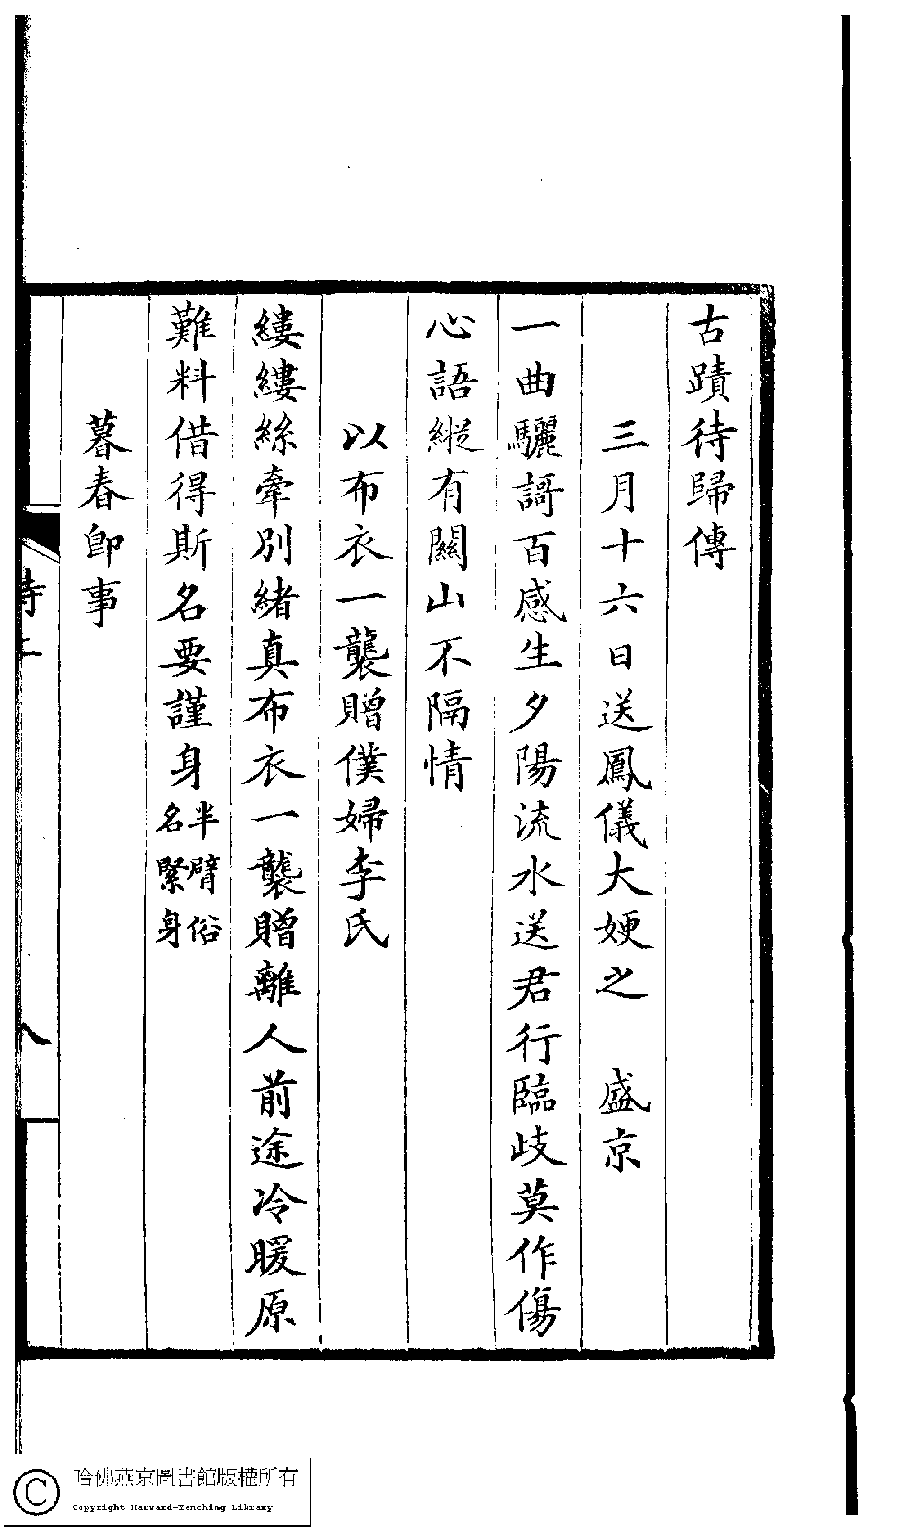 古蹟待歸傳
三月十六日送鳳儀大娣之　盛京
一曲驪謌百感生夕陽流水送君行臨歧莫作傷
心語縱有關山不隔情
以布衣一襲贈僕婦李氏
縷縷絲牽別緒真布衣一襲贈離人前途冷暖原
難料借得斯名要謹身半臂俗名緊身
暮春卽事
哈佛燕京圖書館版權所有
Copyright Harvard-Yenching Library